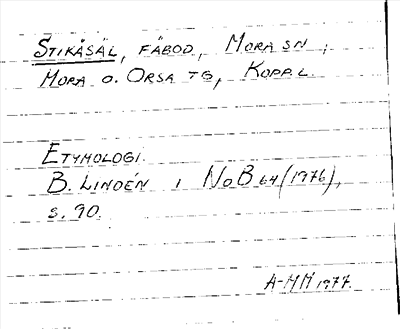 STIKÅSÄL, FÄBOD, MORA SN,
MORA O. ORSA TG, KOPP.L.
ETYMOLOGI.
B. LINDÉN I NoB 64 (1976),
S. 90.
A-MM 1977.